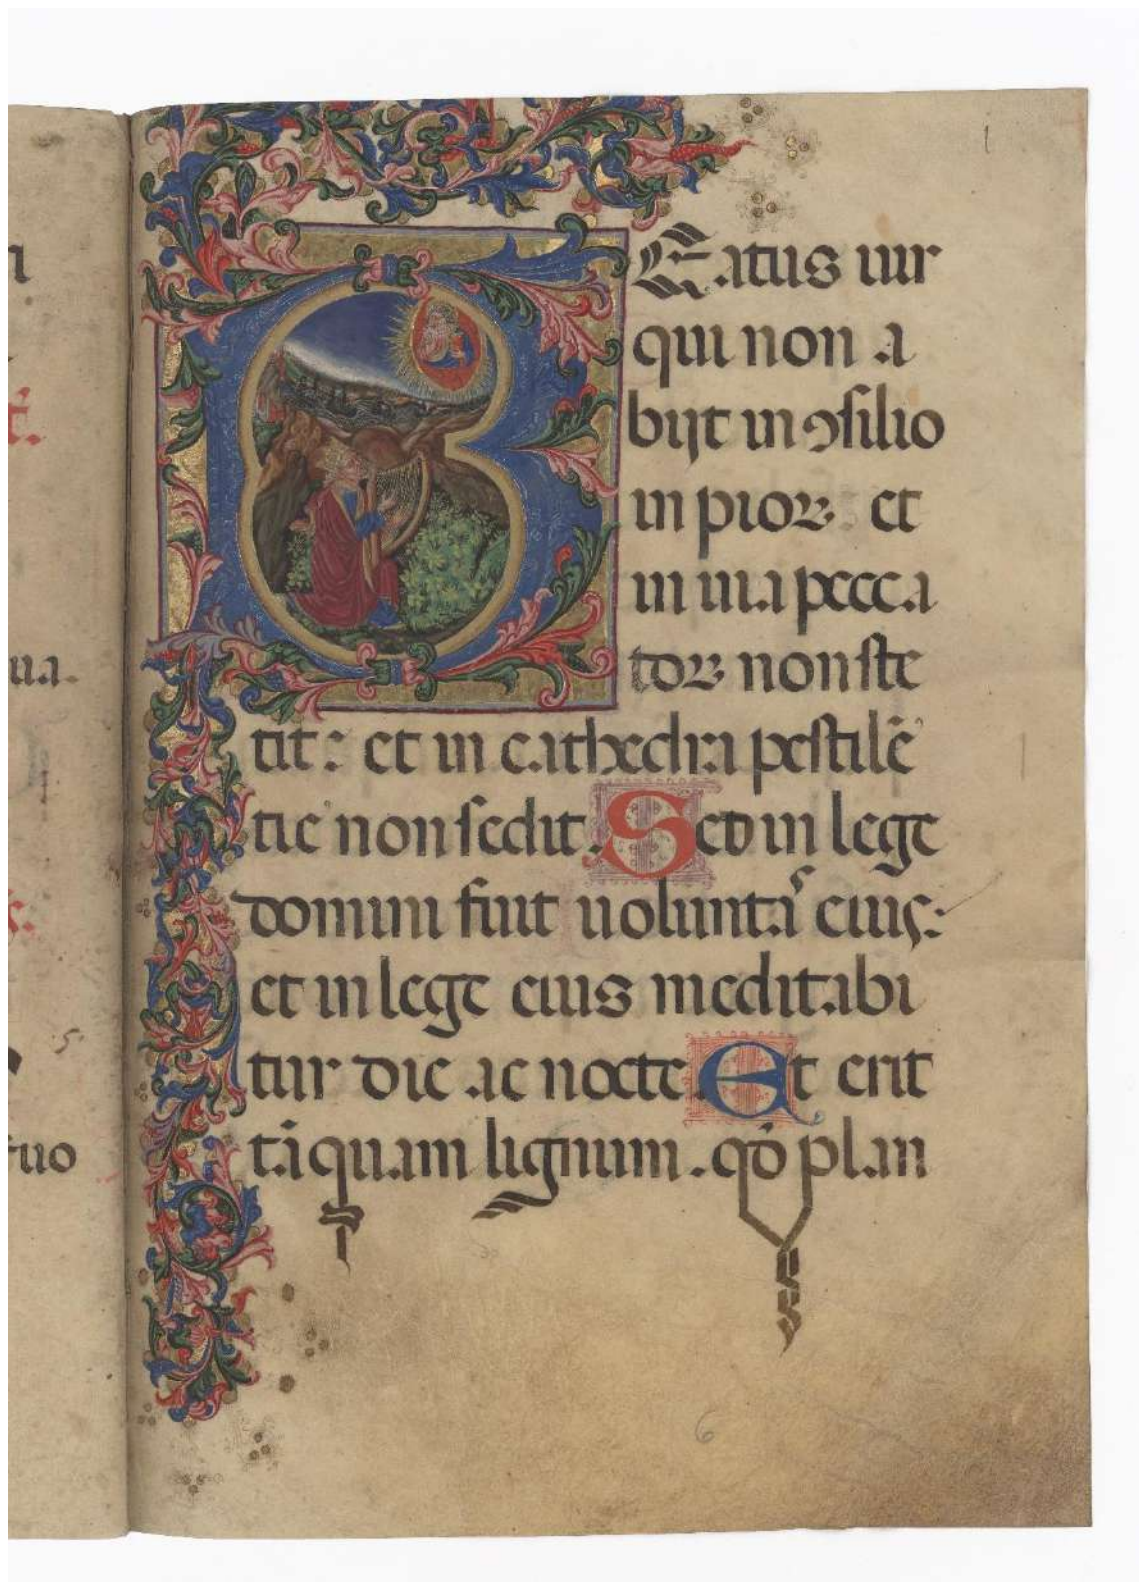 BEatus uir
qui non a
bijt in ꝯsilio
in pioꝝ et
in uia pecca
toꝝ non ste
tit: et in cathedra pestilē
tie non sedit. Sed in lege
domini fuit uolunta⁹ eius:
et in lege eius meditabi
tur die ac nocte. Et erit
tāquam lignum. qđ plan
6